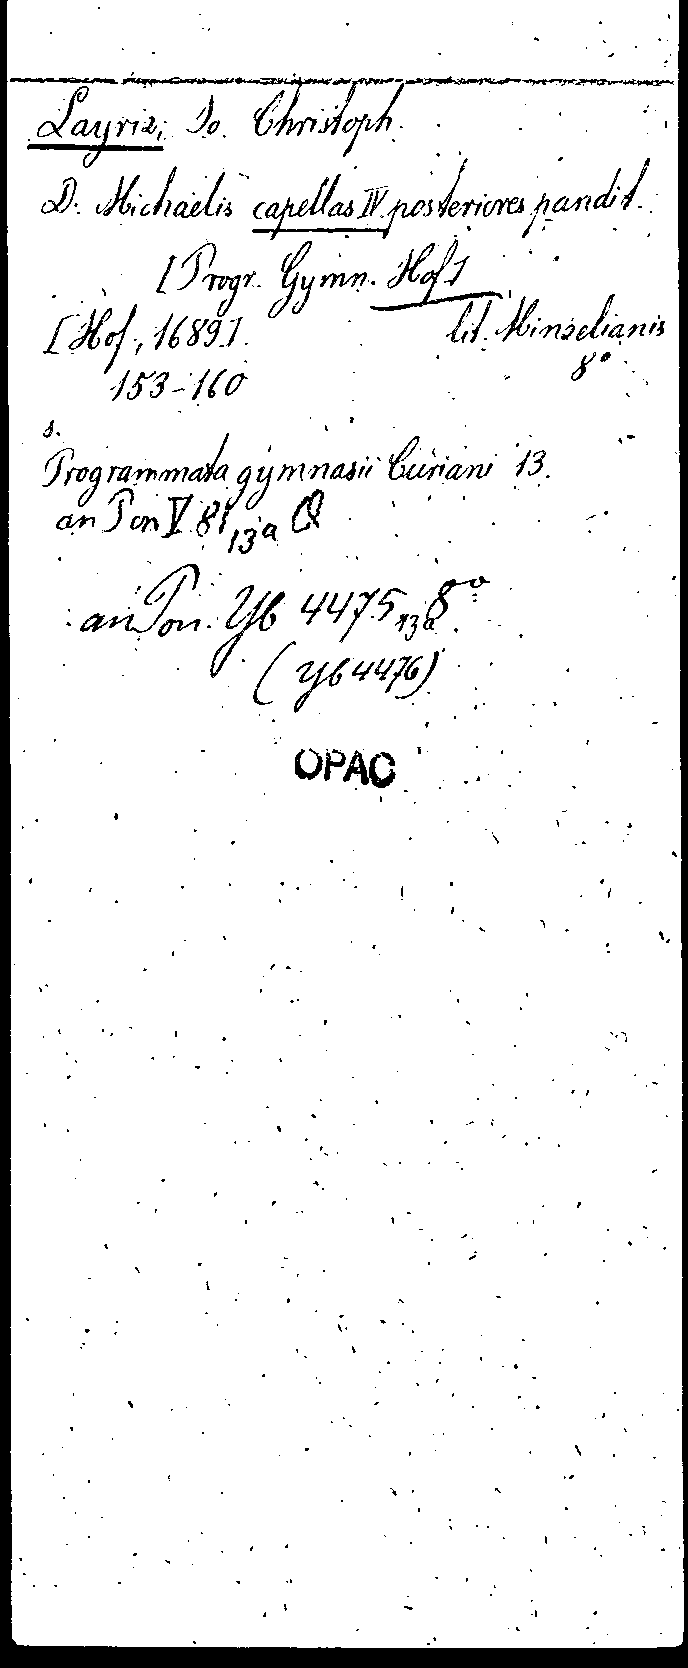 Layriz, Jo. Christoph.
D. Michaelis capellas IV posteriores pandit.
[Progr. Gymn. Hof]
[Hof, 1689]. lit. Minzelianis
153-160 8°
s.
Programmata gymnasii Curiani 13.
an Pon V 81,13a Q
an Pon. Yb 4475,13a 8°
(Yb 4476)
OPAC